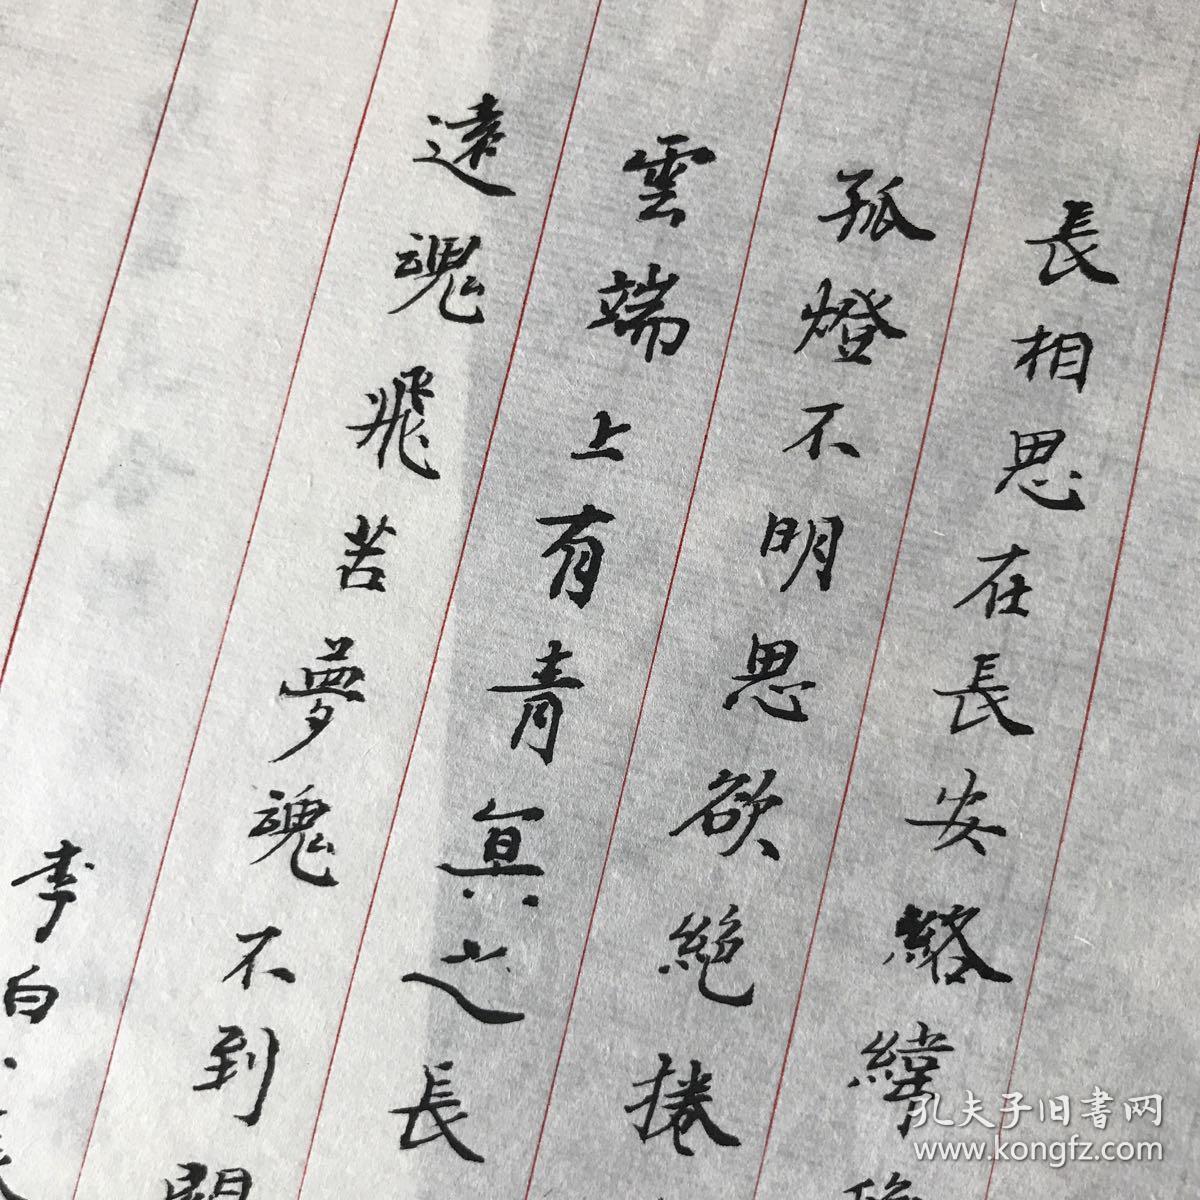 長相思在長安絡緯
孤燈不明思欲絶捲
雲端上有青冥之長
遠魂飛苦夢魂不到關
李白
孔夫子旧書网
www.kongfz.com